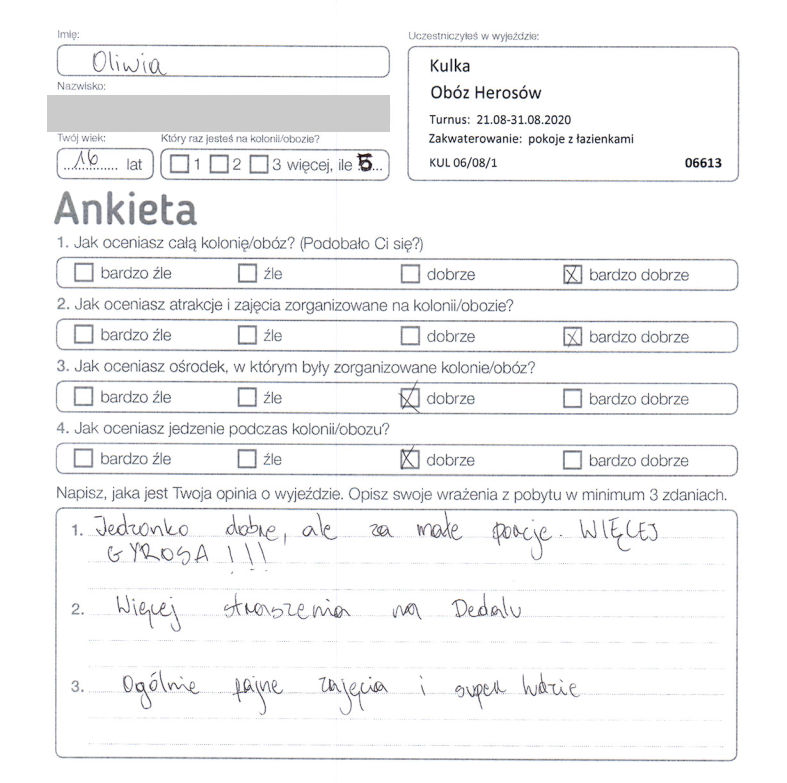 Imię:
Oliwia
Nazwisko:
Twój wiek:
16 lat
Który raz jesteś na kolonii/obozie?
1 2 3 więcej, ile 5
Uczestniczyłeś w wyjeździe:
Kulka
Obóz Herosów
Turnus: 21.08-31.08.2020
Zakwaterowanie: pokoje z łazienkami
KUL 06/08/1 06613
Ankieta
1. Jak oceniasz całą kolonię/obóz? (Podobało Ci się?)
bardzo źle źle dobrze bardzo dobrze
2. Jak oceniasz atrakcje i zajęcia zorganizowane na kolonii/obozie?
bardzo źle źle dobrze bardzo dobrze
3. Jak oceniasz ośrodek, w którym były zorganizowane kolonie/obóz?
bardzo źle źle dobrze bardzo dobrze
4. Jak oceniasz jedzenie podczas kolonii/obozu?
bardzo źle źle dobrze bardzo dobrze
Napisz, jaka jest Twoja opinia o wyjeździe. Opisz swoje wrażenia z pobytu w minimum 3 zdaniach.
1. Jedzonko dobre, ale za małe porcje. WIĘCEJ
GYROSA !!!
2. Więcej straszenia na Dedalu
3. Ogólnie fajne zajęcia i super ludzie